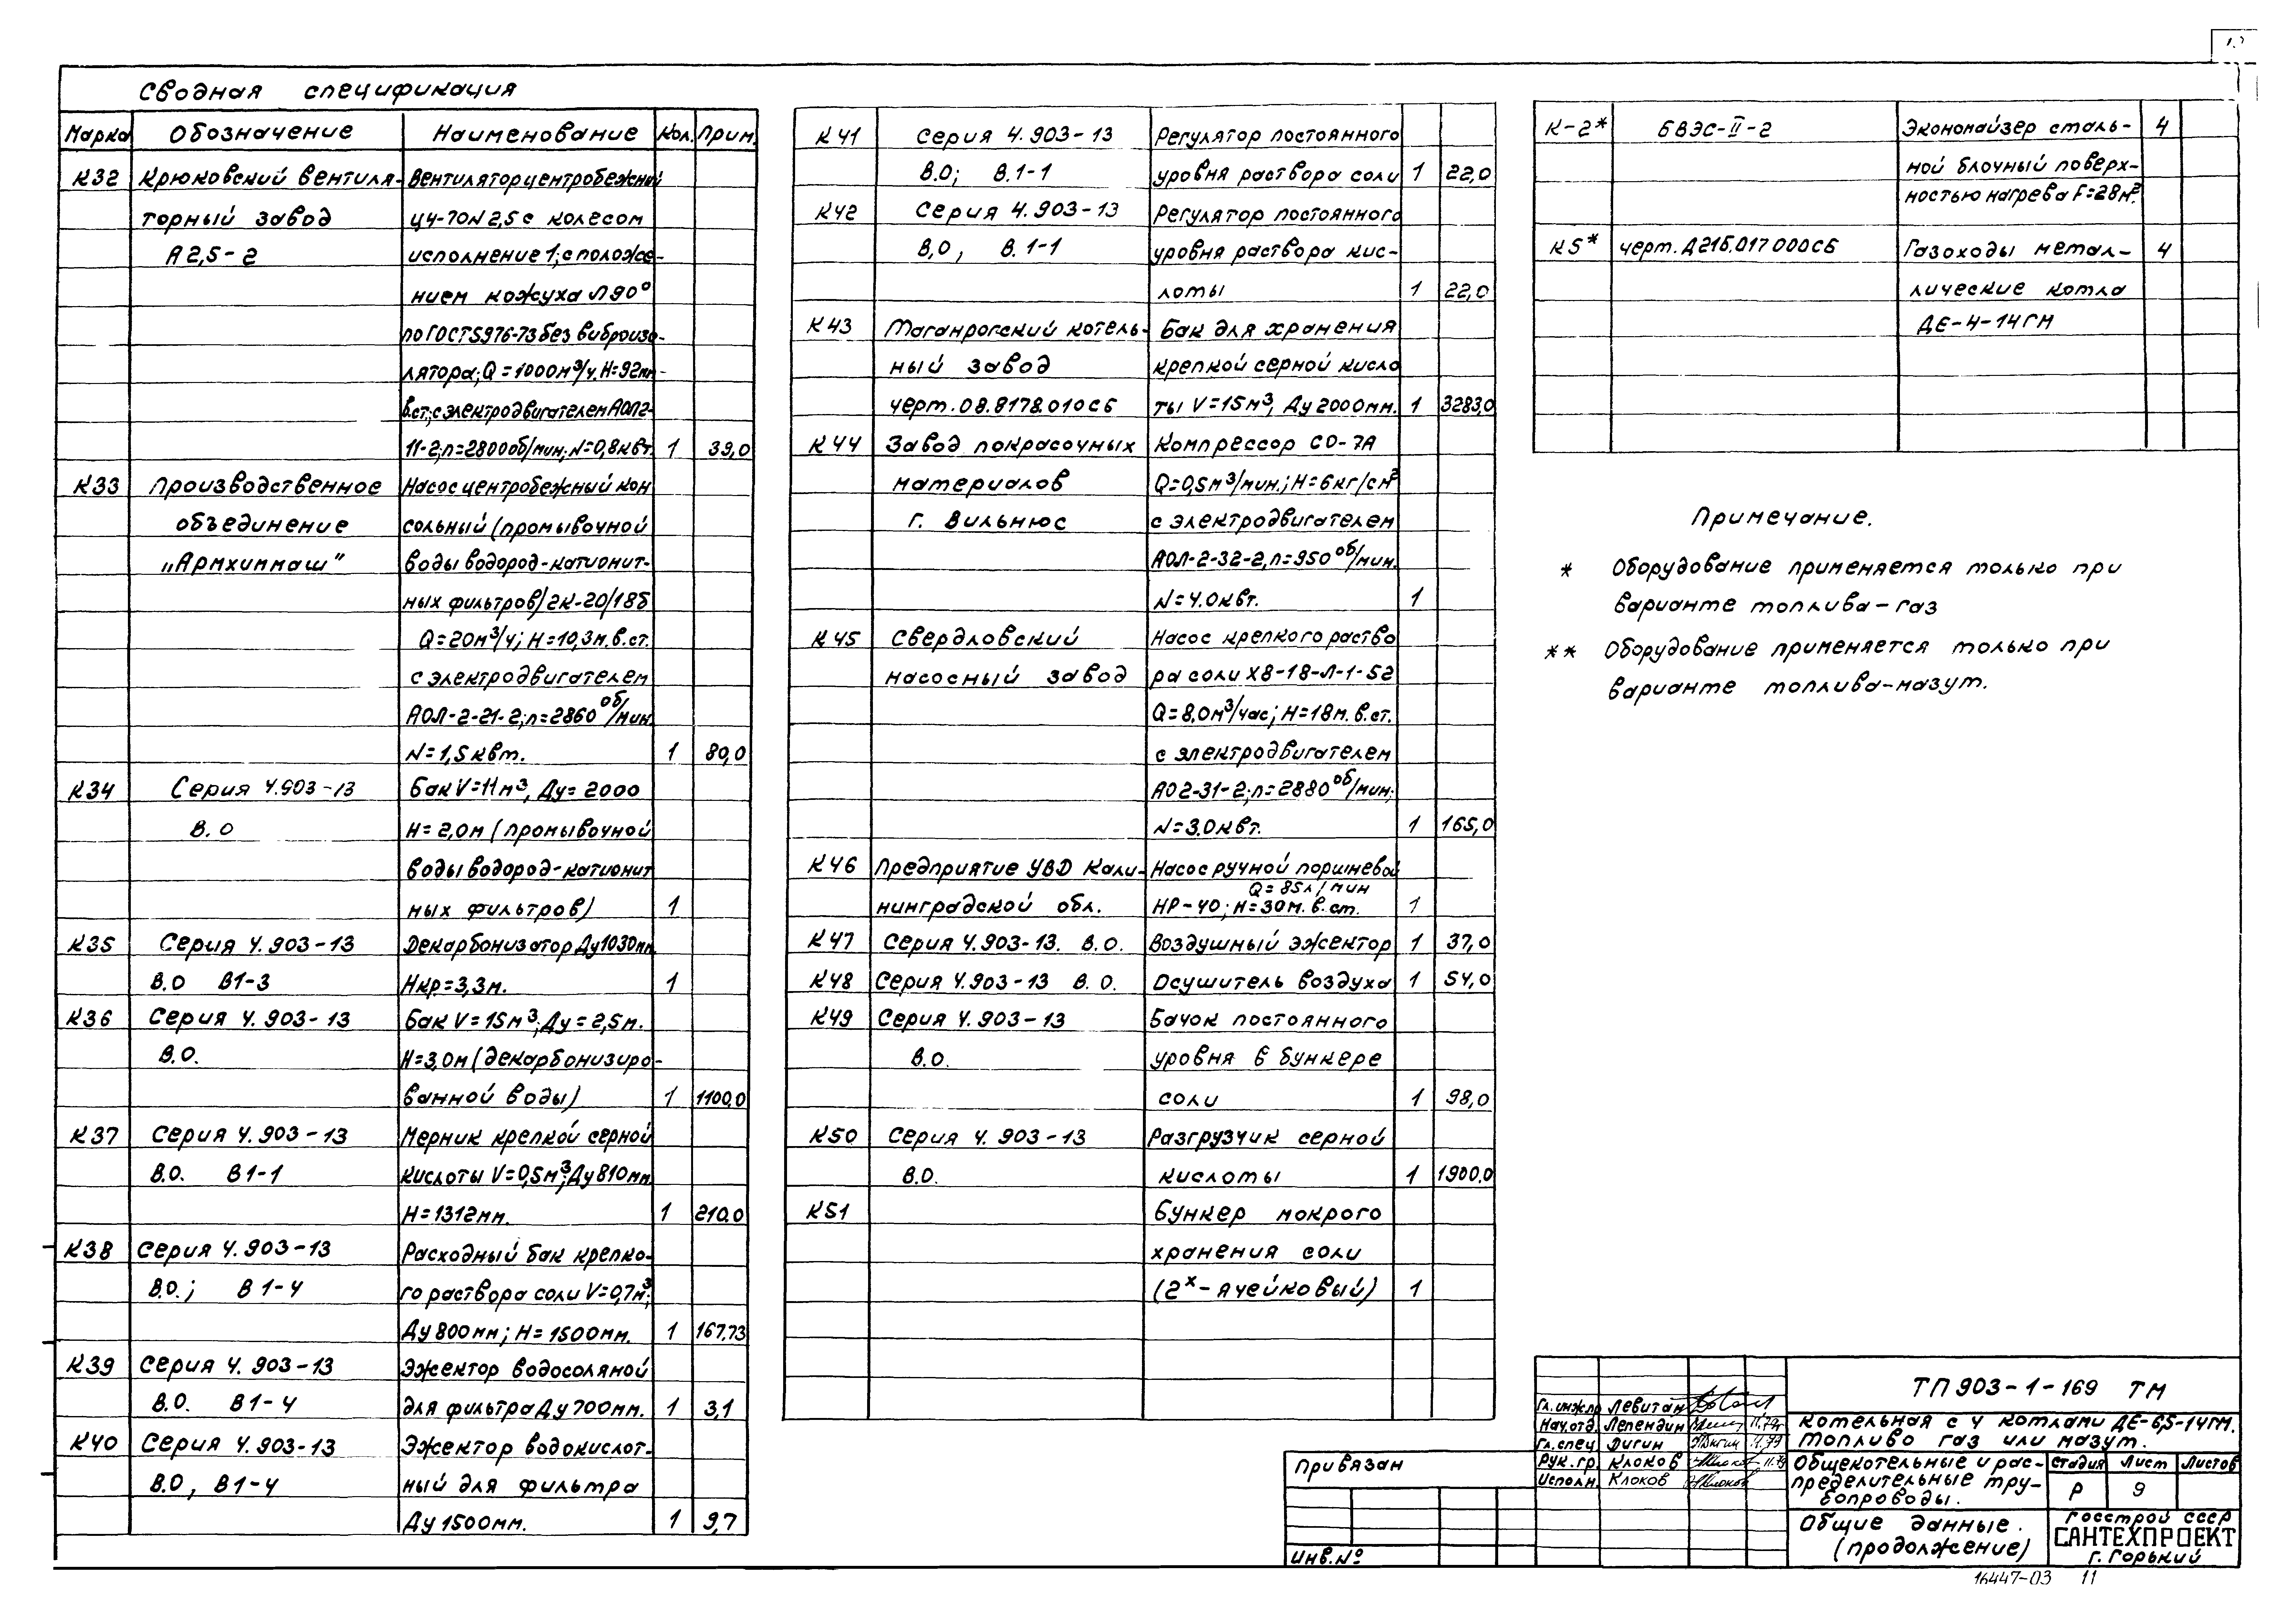 Сводная спецификация
Марка Обозначение Наименование Кол. Прим.
К32 Крюковский вентиля- Вентилятор центробежный
торный завод Ц4-70№2,5 с колесом
А2,5-2 исполнение 1; с положе-
нием кожуха Л90°
по ГОСТ 5976-73 без виброизо-
лятора; Q=1000м³/ч. Н=92мм
в.ст; с электродвигателем АОЛ2-
11-2; n=2800об/мин; N=0,8квт. 1 39,0
К33 Производственное Насос центробежный кон
объединение сольный (промывочной
„Армхиммаш" воды водород-катионит-
ных фильтров) 2К-20/18б
Q=20м³/ч; Н=10,3м.в.ст.
с электродвигателем
АОЛ-2-21-2; n=2860 об/мин
N=1,5квт. 1 80,0
К34 Серия 4.903-13 Бак V=11м³, Ду=2000
В.0 Н=2,0м (промывочной
воды водород-катионит
ных фильтров) 1
К35 Серия 4.903-13 Декарбонизатор Ду1030мм
В.0 В1-3 Нкр.=3,3м. 1
К36 Серия 4.903-13 Бак V=15м³; Ду=2,5м.
В.0. Н=3,0м (декарбонизиро-
ванной воды) 1 1100,0
К37 Серия 4.903-13 Мерник крепкой серной
В.0. В1-1 кислоты V=0,5м³; Ду810мм
Н=1312мм. 1 210.0
К38 Серия 4.903-13 Расходный бак крепко-
В.0.; В1-4 го раствора соли V=0,7м³;
Ду800мм; Н=1500мм. 1 167,73
К39 Серия 4.903-13 Эжектор водосоляной
В.0. В1-4 для фильтра Ду700мм. 1 3,1
К40 Серия 4.903-13 Эжектор водокислот-
В.0, В1-4 ный для фильтра
Ду1500мм. 1 9,7
К41 Серия 4.903-13 Регулятор постоянного
В.0; В.1-1 уровня раствора соли 1 22,0
К42 Серия 4.903-13 Регулятор постоянного
В,0, В.1-1 уровня раствора кис-
лоты 1 22,0
К43 Таганрогский котель- Бак для хранения
ный завод крепкой серной кисло
черт.08.8178.010сб ты V=15м³, Ду2000мм. 1 3283,0
К44 Завод покрасочных Компрессор СО-7А
материалов Q=0,5м³/мин.; Н=6кг/см²
г. Вильнюс с электродвигателем
АОЛ-2-32-2, n=950 об/мин.
N=4.0квт. 1
К45 Свердловский Насос крепкого раство
насосный завод ра соли Х8-18-Л-1-52
Q=8,0м³/час; Н=18м.в.ст.
с электродвигателем
АО2-31-2; n=2880 об/мин;
N=3.0квт. 1 165,0
К46 Предприятие УВД Кали- Насос ручной поршневой
Q=85л/мин
нинградской обл. НР-40; Н=30м.в.ст. 1
К47 Серия 4.903-13. В.0. Воздушный эжектор 1 37,0
К48 Серия 4.903-13 В.0. Осушитель воздуха 1 54,0
К49 Серия 4.903-13 Бачок постоянного
В.0. уровня в бункере
соли 1 98,0
К50 Серия 4.903-13 Разгрузчик серной
В.0. кислоты 1 1900.0
К51 Бункер мокрого
хранения соли
(2х-ячейковый) 1
К-2* БВЭС-II-2 Экономайзер сталь- 4
ной блочный поверх-
ностью нагрева F=28м².
К5* черт. Д216.017 000СБ Газоходы метал- 4
лические котла
ДЕ-4-14ГМ
Примечание.
* Оборудование применяется только при
варианте топлива-газ
** Оборудование применяется только при
варианте топлива-мазут.
Привязан
Инв.№
Гл.инж.пр Левитан
Нач.отд. Лепендин 11.79г
Гл.спец Дигин
Рук.гр. Клоков 11.79
Исполн. Клоков
ТП 903-1-169 ТМ
Котельная с 4 котлами ДЕ-6,5-14ГМ.
Топливо газ или мазут.
Общекотельные и рас-
пределительные тру-
бопроводы.
Стадия Лист Листов
Р 9
Общие данные.
(продолжение)
Госстрой СССР
САНТЕХПРОЕКТ
г. Горький
16447-03 11